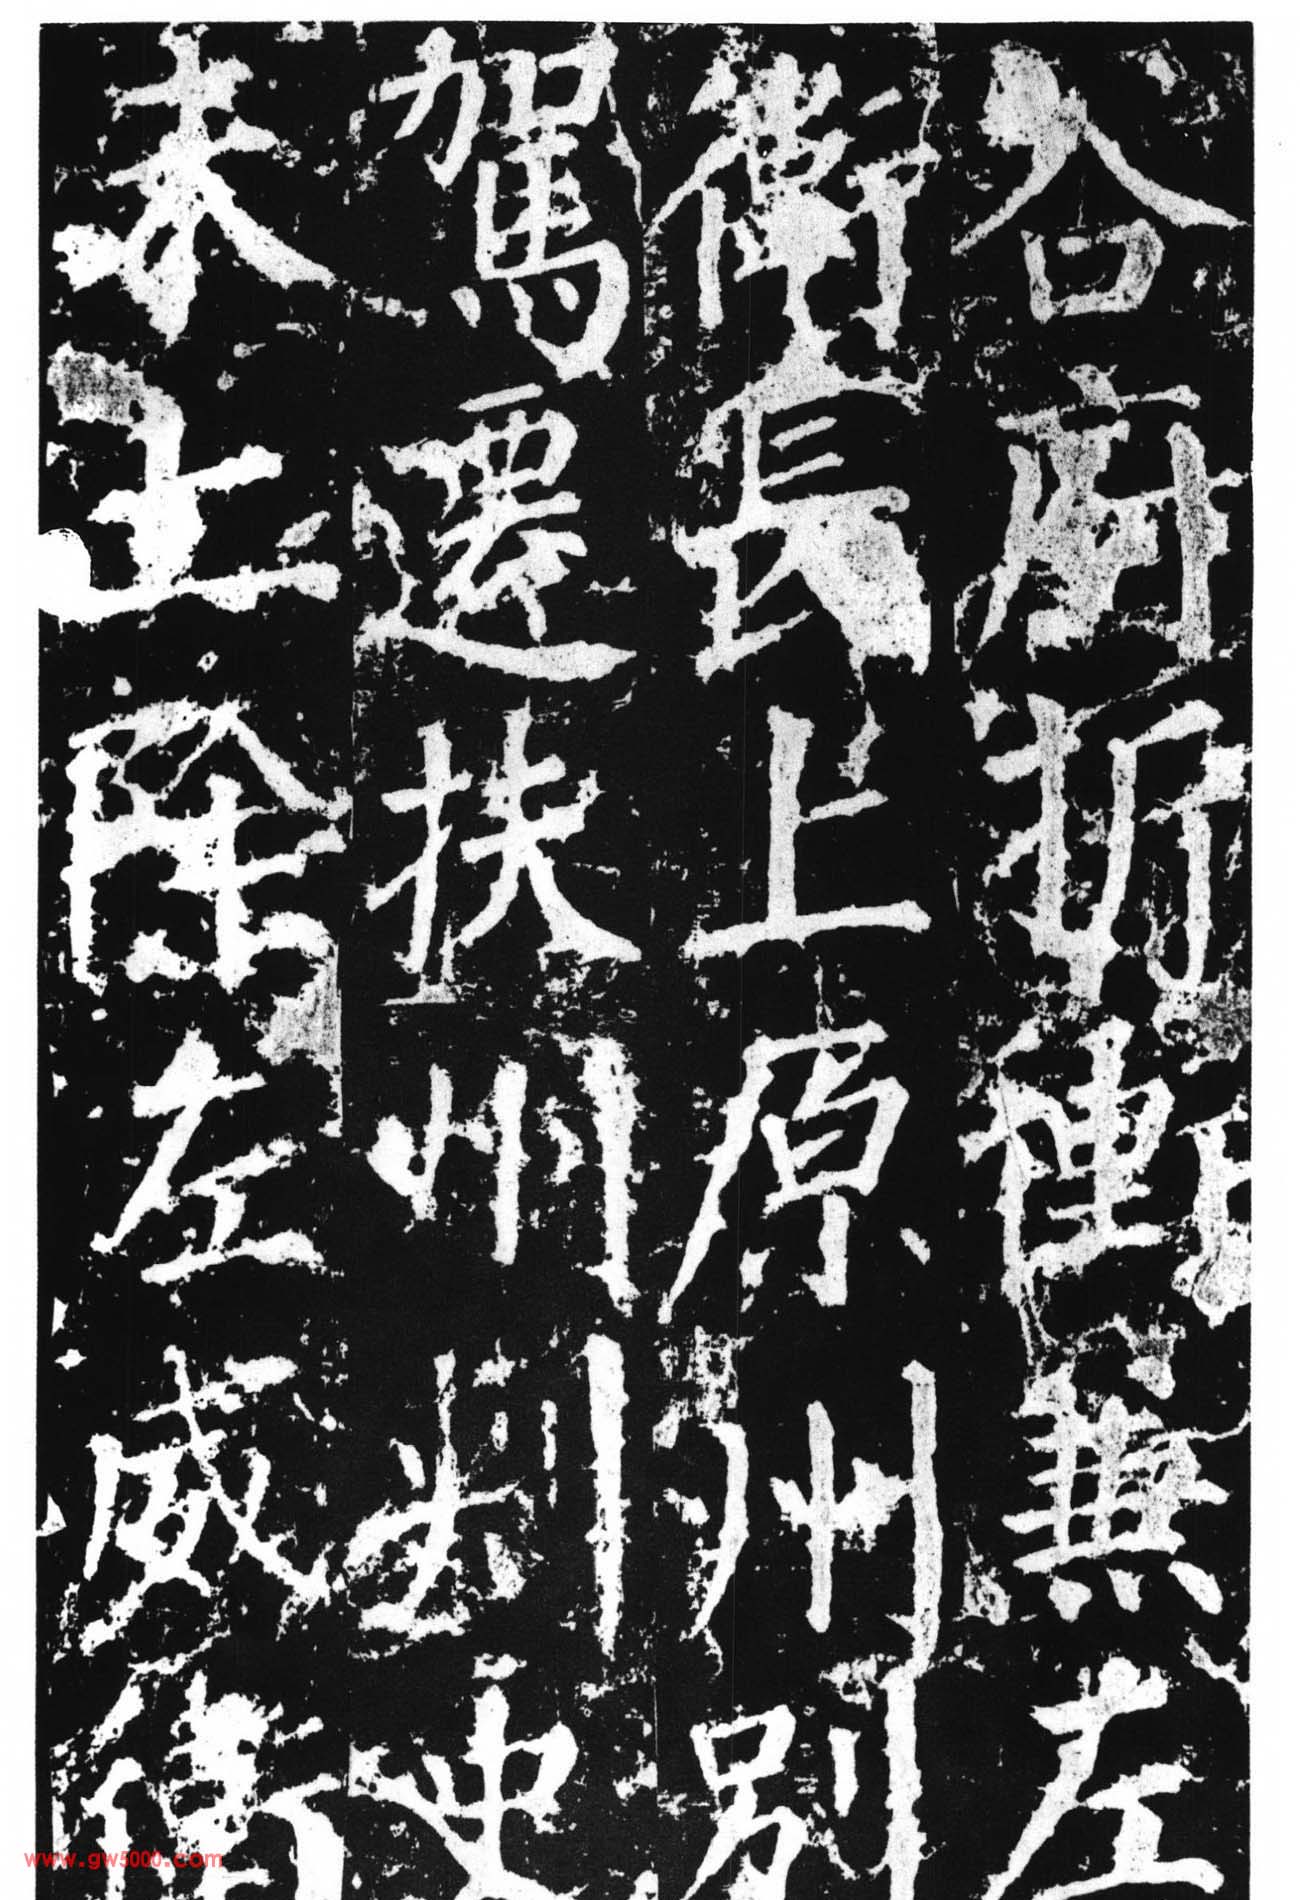 谷府折衝兼左
衛長上原州別
駕遷扶州刺史
未上除左威衛
www.gw5000.com